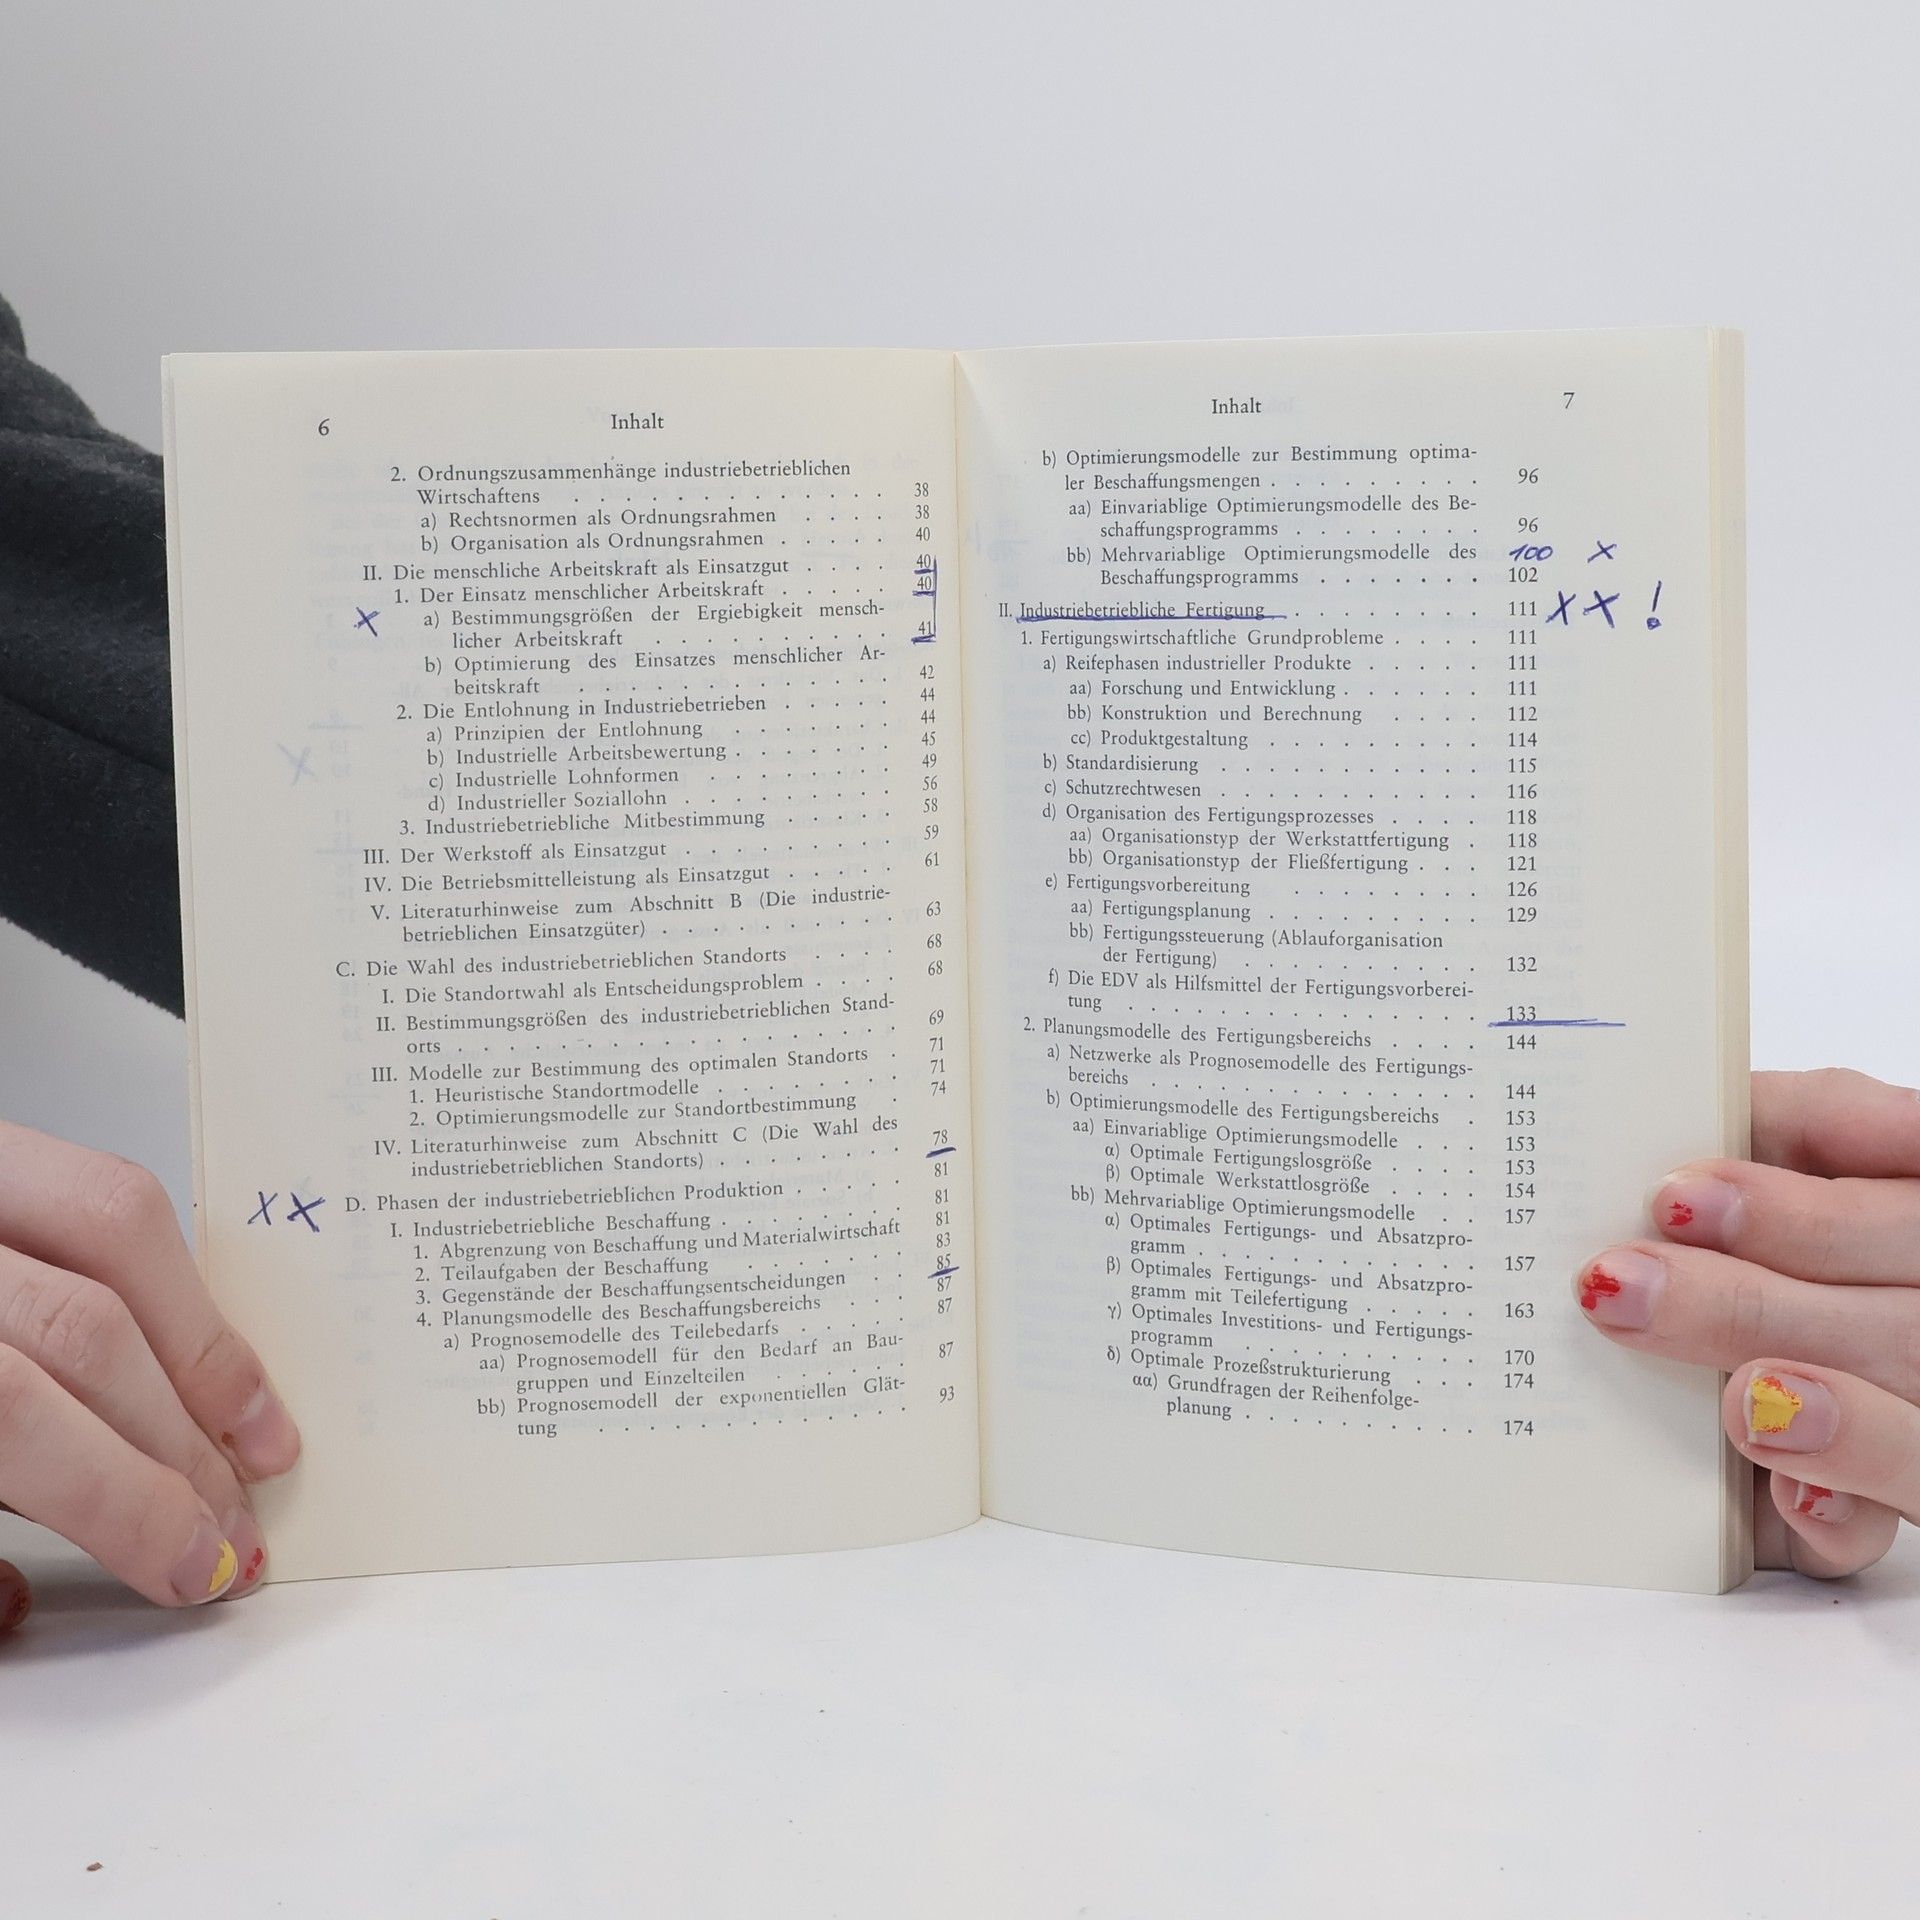 6
Inhalt
2. Ordnungszusammenhänge industriebetrieblichen
Wirtschaftens . . . . . . . . . . . . 38
a) Rechtsnormen als Ordnungsrahmen . . . . 38
b) Organisation als Ordnungsrahmen . . . . . 40
II. Die menschliche Arbeitskraft als Einsatzgut . . . . 40
1. Der Einsatz menschlicher Arbeitskraft . . . . . 40
x a) Bestimmungsgrößen der Ergiebigkeit mensch-
licher Arbeitskraft . . . . . . . . . . 41
b) Optimierung des Einsatzes menschlicher Ar-
beitskraft . . . . . . . . . . . . 42
2. Die Entlohnung in Industriebetrieben . . . . . 44
a) Prinzipien der Entlohnung . . . . . . . 44
b) Industrielle Arbeitsbewertung . . . . . . 45
c) Industrielle Lohnformen . . . . . . . 49
d) Industrieller Soziallohn . . . . . . . . 56
3. Industriebetriebliche Mitbestimmung . . . . . 58
III. Der Werkstoff als Einsatzgut . . . . . . . . 59
IV. Die Betriebsmittelleistung als Einsatzgut . . . . . 61
V. Literaturhinweise zum Abschnitt B (Die industrie-
betrieblichen Einsatzgüter) . . . . . . . . 63
C. Die Wahl des industriebetrieblichen Standorts . . . . 68
I. Die Standortwahl als Entscheidungsproblem . . . . 68
II. Bestimmungsgrößen des industriebetrieblichen Stand-
orts . . . . . . . . . . . . . . . 69
III. Modelle zur Bestimmung des optimalen Standorts . 71
1. Heuristische Standortmodelle . . . . . . . 71
2. Optimierungsmodelle zur Standortbestimmung . 74
IV. Literaturhinweise zum Abschnitt C (Die Wahl des
industriebetrieblichen Standorts) . . . . . . . . 78
x x D. Phasen der industriebetrieblichen Produktion . . . . . 81
I. Industriebetriebliche Beschaffung . . . . . . . 81
1. Abgrenzung von Beschaffung und Materialwirtschaft 81
2. Teilaufgaben der Beschaffung . . . . . . 83
3. Gegenstände der Beschaffungsentscheidungen . . 85
4. Planungsmodelle des Beschaffungsbereichs . . . 87
a) Prognosemodelle des Teilebedarfs . . . . . 87
aa) Prognosemodell für den Bedarf an Bau-
gruppen und Einzelteilen . . . . . 87
bb) Prognosemodell der exponentiellen Glät-
tung . . . . . . . . . . . 93
Inhalt
7
b) Optimierungsmodelle zur Bestimmung optima-
ler Beschaffungsmengen . . . . . . . . . 96
aa) Einvariablige Optimierungsmodelle des Be-
schaffungsprogramms . . . . . . . . 96
bb) Mehrvariablige Optimierungsmodelle des 100 x
Beschaffungsprogramms . . . . . . . 102
II. Industriebetriebliche Fertigung . . . . . . . . 111 x x !
1. Fertigungswirtschaftliche Grundprobleme . . . . 111
a) Reifephasen industrieller Produkte . . . . . 111
aa) Forschung und Entwicklung . . . . . . 111
bb) Konstruktion und Berechnung . . . . 112
cc) Produktgestaltung . . . . . . . . . 114
b) Standardisierung . . . . . . . . . . 115
c) Schutzrechtwesen . . . . . . . . . . 116
d) Organisation des Fertigungsprozesses . . . . 118
aa) Organisationstyp der Werkstattfertigung . 118
bb) Organisationstyp der Fließfertigung . . . 121
e) Fertigungsvorbereitung . . . . . . . 126
aa) Fertigungsplanung . . . . . . . . . 129
bb) Fertigungssteuerung (Ablauforganisation
der Fertigung) . . . . . . . . . . 132
f) Die EDV als Hilfsmittel der Fertigungsvorberei-
tung . . . . . . . . . . . . . . 133
2. Planungsmodelle des Fertigungsbereichs . . . . 144
a) Netzwerke als Prognosemodelle des Fertigungs-
bereichs . . . . . . . . . . . . . 144
b) Optimierungsmodelle des Fertigungsbereichs . 153
aa) Einvariablige Optimierungsmodelle . . . 153
α) Optimale Fertigungslosgröße . . . . 153
β) Optimale Werkstattlosgröße . . . . 154
bb) Mehrvariablige Optimierungsmodelle . . 157
α) Optimales Fertigungs- und Absatzpro-
gramm . . . . . . . . . . . 157
β) Optimales Fertigungs- und Absatzpro-
gramm mit Teilefertigung . . . . . 163
γ) Optimales Investitions- und Fertigungs-
programm . . . . . . . . . 170
δ) Optimale Prozeßstrukturierung . . . 174
αα) Grundfragen der Reihenfolge-
planung . . . . . . . . . 174